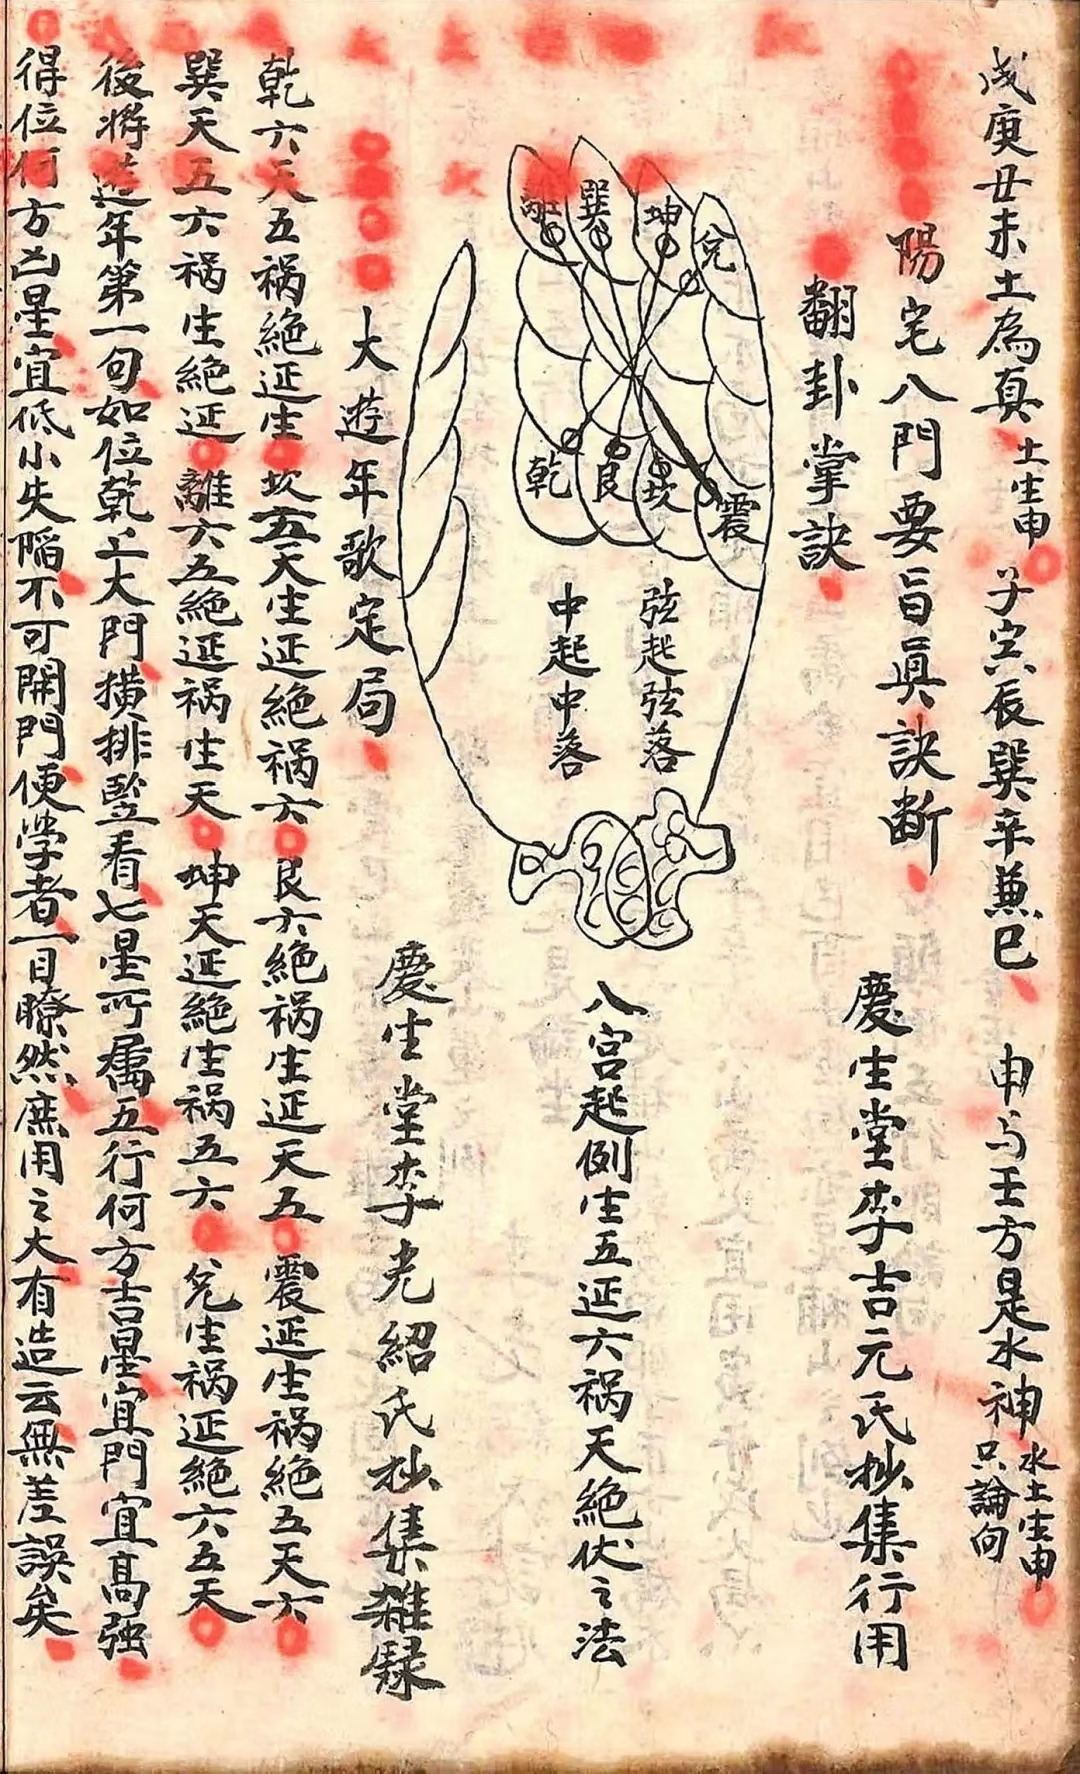 戌庚丑未土為真 土生申 子寅辰巽辛兼巳 申与壬方是水神 水土生申 只論向
陽宅八門要旨眞訣断 慶生堂李吉元氏抄集行用
翻卦掌訣
離 巽 坤 兌
乾 艮 坎 震
弦起弦落
中起中落
八宮起例生五延六祸天絶伏之法
慶生堂李光紹氏抄集雑録
大遊年歌定局
乾六天五祸絶延生 坎五天生延絶祸六 艮六絶祸生延天五 震延生祸絶五天六
巽天五六祸生絶延 離六五絶延祸生天 坤天延絶生祸五六 兌生祸延絶六五天
後將遊年第一句如位乾上大門横排竪看七星所属五行何方吉星宜門宜高强
得位何方凶星宜低小失陷不可開門便学者一目瞭然庶用之大有造云無差誤矣